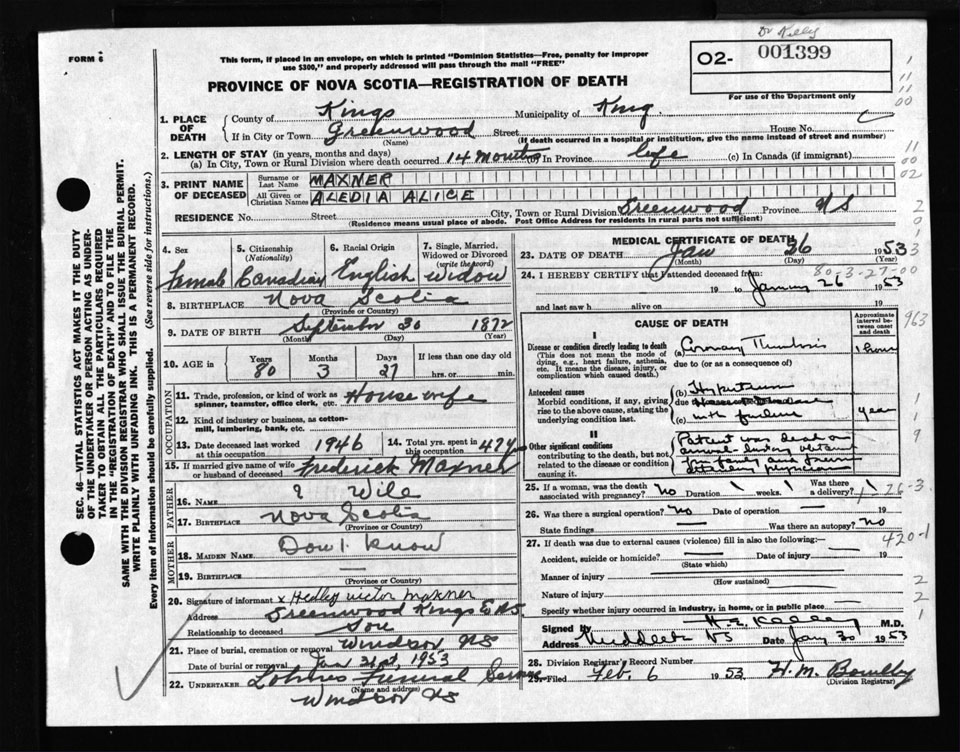 Dr Kelly
FORM 6
This form, if placed in an envelope, on which is printed "Dominion Statistics—Free, penalty for improper
use $300," and properly addressed will pass through the mail "FREE"
O2- 001399
For use of the Department only
PROVINCE OF NOVA SCOTIA—REGISTRATION OF DEATH
1. PLACE OF DEATH
County of Kings Municipality of King
If in City or Town Greenwood Street House No.
(Name) (If death occurred in a hospital or institution, give the name instead of street and number)
2. LENGTH OF STAY (in years, months and days)
(a) In City, Town or Rural Division where death occurred 14 Months In Province life (c) In Canada (if immigrant)
3. PRINT NAME OF DECEASED
Surname or Last Name MAXNER
All Given or Christian Names ALEDIA ALICE
RESIDENCE No. Street City, Town or Rural Division Greenwood Province NS
(Residence means usual place of abode. Post Office Address for residents in rural parts not sufficient)
4. Sex Female
5. Citizenship (Nationality) Canadian
6. Racial Origin English
7. Single, Married, Widowed or Divorced (write the word) Widow
8. BIRTHPLACE Nova Scotia
(Province or Country)
9. DATE OF BIRTH September 30 1872
(Month) (Day) (Year)
10. AGE in Years 80 Months 3 Days 27 If less than one day old hrs. or min.
OCCUPATION
11. Trade, profession, or kind of work as spinner, teamster, office clerk, etc. House wife
12. Kind of industry or business, as cotton-mill, lumbering, bank, etc.
13. Date deceased last worked at this occupation 1946
14. Total yrs. spent in this occupation 47 y
15. If married give name of wife or husband of deceased Frederick Maxner
FATHER
16. NAME ? Wile
17. BIRTHPLACE Nova Scotia
(Province or Country)
MOTHER
18. MAIDEN NAME Don't Know
19. BIRTHPLACE —
(Province or Country)
20. Signature of informant x Hedley Victor Maxner
Address Greenwood Kings Co NS
Relationship to deceased Son
21. Place of burial, cremation or removal Windsor, NS
Date of burial or removal Jan 31st, 1953
22. UNDERTAKER Lohnes Funeral Service
(Name and address)
Windsor NS
MEDICAL CERTIFICATE OF DEATH
23. DATE OF DEATH Jan 26 1953
(Month) (Day) (Year)
80-3-27-00
24. I HEREBY CERTIFY that I attended deceased from:
19 to January 26 1953
and last saw h alive on 19
CAUSE OF DEATH
Approximate interval between onset and death
I
Disease or condition directly leading to death (a) Coronary Thrombosis 1 hour
(This does not mean the mode of dying, e.g., heart failure, asthenia, etc. It means the disease, injury, or complication which caused death.)
due to (or as a consequence of)
Antecedent causes (b)
Morbid conditions, if any, giving rise to the above cause, stating the underlying condition last. due to (or as a consequence of)
(c) with failure year
II
Other significant conditions contributing to the death, but not related to the disease or condition causing it.
Patient was dead on
arrival
physician
25. If a woman, was the death associated with pregnancy? No Duration weeks. Was there a delivery?
26-3
26. Was there a surgical operation? No Date of operation — 19
State findings — Was there an autopsy? No
420-1
27. If death was due to external causes (violence) fill in also the following:—
Accident, suicide or homicide? — Date of injury — 19
(State which)
Manner of injury
(How sustained)
Nature of injury
Specify whether injury occurred in industry, in home, or in public place
Signed by H. E. Kelley M.D.
Address Middleton NS Date Jan 30 1953
28. Division Registrar's Record Number
29. Filed Feb. 6 1953 H. M. Bowlby
(Division Registrar)
963
SEC. 46—VITAL STATISTICS ACT MAKES IT THE DUTY
OF THE UNDERTAKER OR PERSON ACTING AS UNDER-
TAKER TO OBTAIN ALL THE PARTICULARS REQUIRED
IN THE "REGISTRATION OF DEATH" AND TO FILE THE
SAME WITH THE DIVISION REGISTRAR WHO SHALL ISSUE THE BURIAL PERMIT.
WRITE PLAINLY WITH UNFADING INK. THIS IS A PERMANENT RECORD.
Every item of information should be carefully supplied. (See reverse side for instructions.)